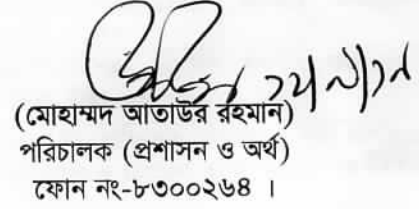 (মোহাম্মদ আতাউর রহমান)
পরিচালক (প্রশাসন ও অর্থ)
ফোন নং-৮৩০০২৬৪ ।